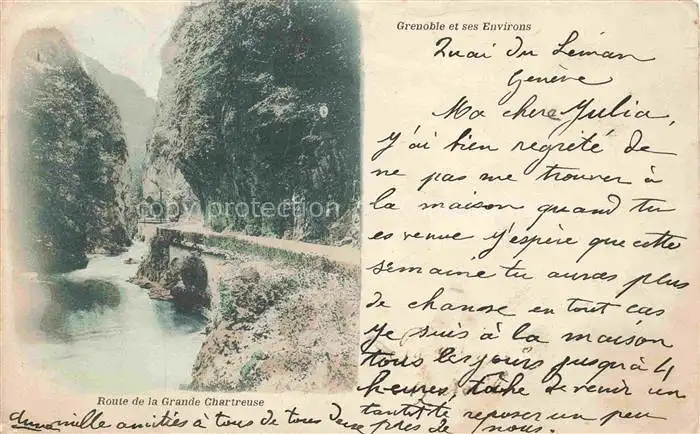 Grenoble et ses Environs
Quai du Léman
Genève
Ma chere Julia,
J'ai bien regretté de
ne pas me trouver à
la maison quand tu
es venue j'espère que cette
semaine tu auras plus
de chanse en tout cas
je suis à la maison
tous les jours jusqu'à 4
heures, tâche de venir un
tantôt te reposer un peu
près de nous.
copy protection
Route de la Grande Chartreuse
mille amitiés à tous de tous deux